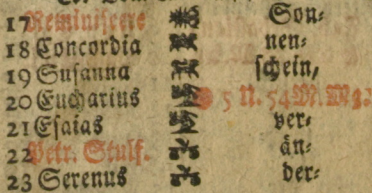 17 Reminiscere Son⸗
18 Concordia nen⸗
19 Susanna schein,
20 Eucharius 5 N. 54 M.
21 Esaias ver⸗
22 Petr. Stulf. än⸗
23 Serenus der⸗